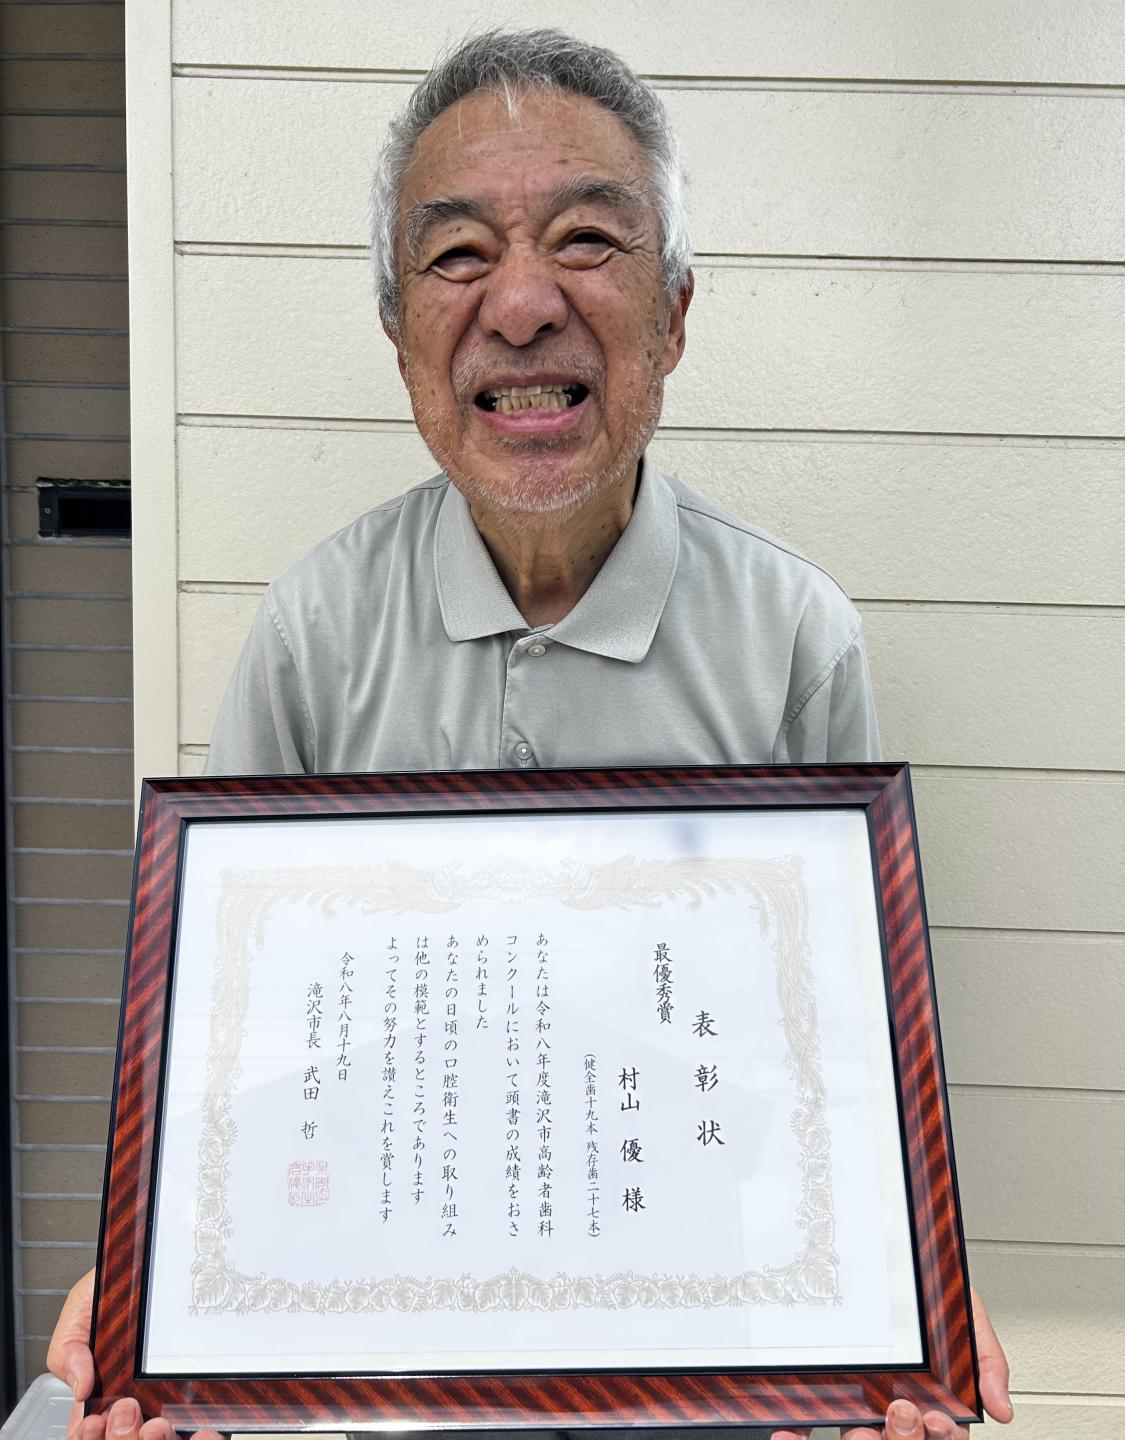 表彰状
最優秀賞
村山 優 様
(健全歯十九本 残存歯二十七本)
あなたは令和八年度滝沢市高齢者歯科
コンクールにおいて頭書の成績をおさ
められました
あなたの日頃の口腔衛生への取り組み
は他の模範とするところであります
よってその努力を讃えこれを賞します
令和八年八月十九日
滝沢市長 武田 哲